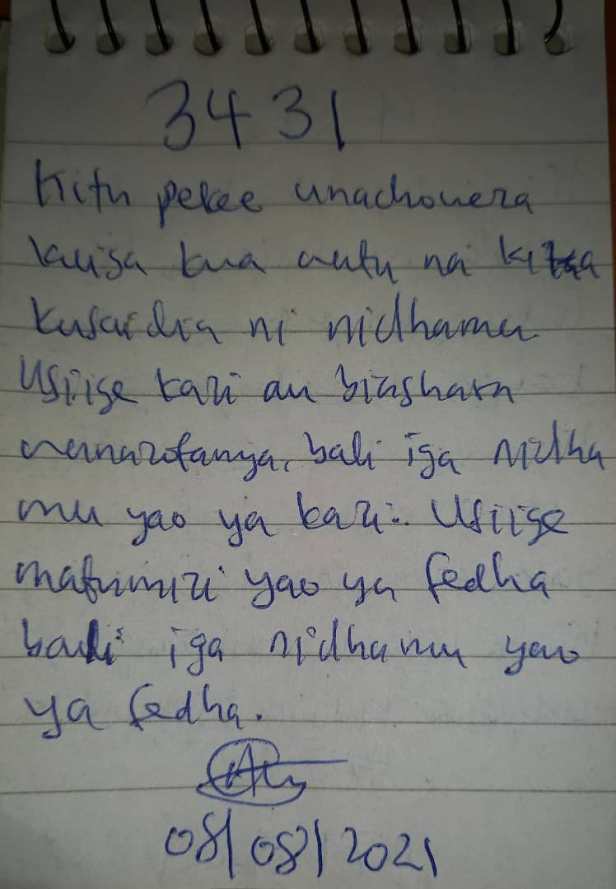 3431
Kitu pekee unachoweza
kuiga kwa watu na kika
kusaidia ni nidhamu
Usiige kazi au biashara
wanazofanya, bali iga nidha
mu yao ya kazi. Usiige
matumizi yao ya fedha
bali iga nidhamu yao
ya fedha.
08/08/2021